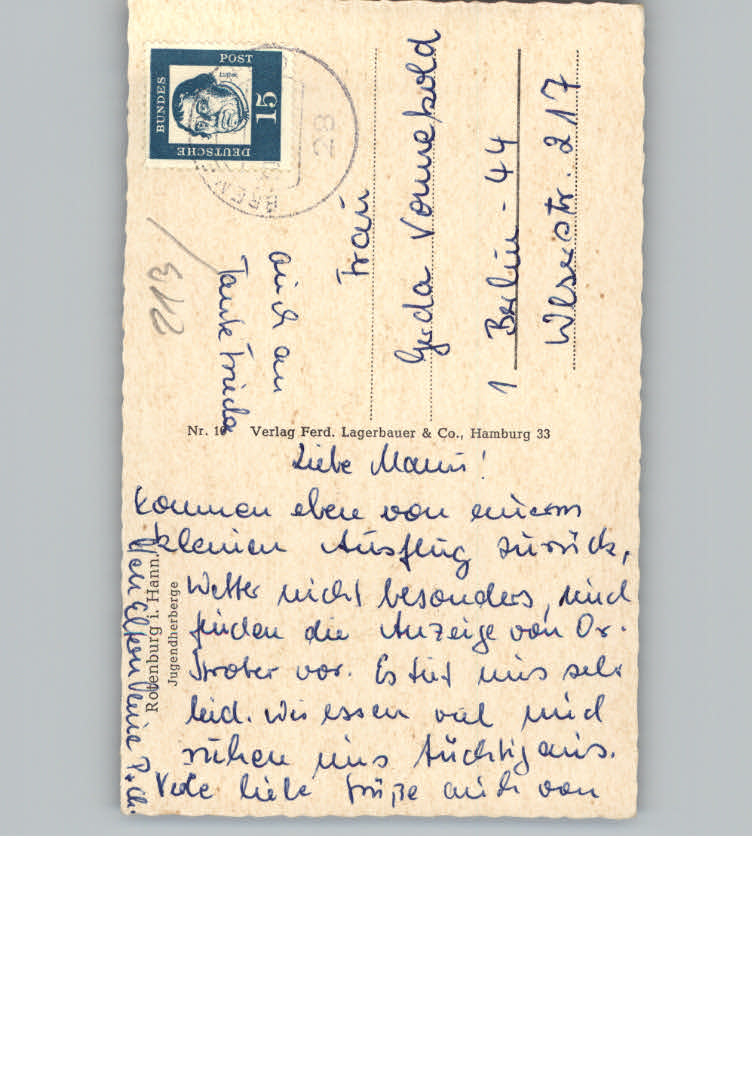 DEUTSCHE
BUNDES
POST
15
Luther
BREMEN
28
312
auch an
Tante Frieda
Frau
Gerda Vonnekold
1 Berlin - 44
Weserstr. 217
Nr. 10 Verlag Ferd. Lagerbauer & Co., Hamburg 33
Rotenburg i. Hann.
Jugendherberge
Liebe Mami!
kommen eben von einem
kleinen Ausflug zurück,
Wetter nicht besonders, und
finden die Anzeige von Dr.
vor. Es tut uns sehr
leid. Wir essen viel und
ruhen uns tüchtig aus.
Viele liebe Grüße auch von
den Eltern Deine